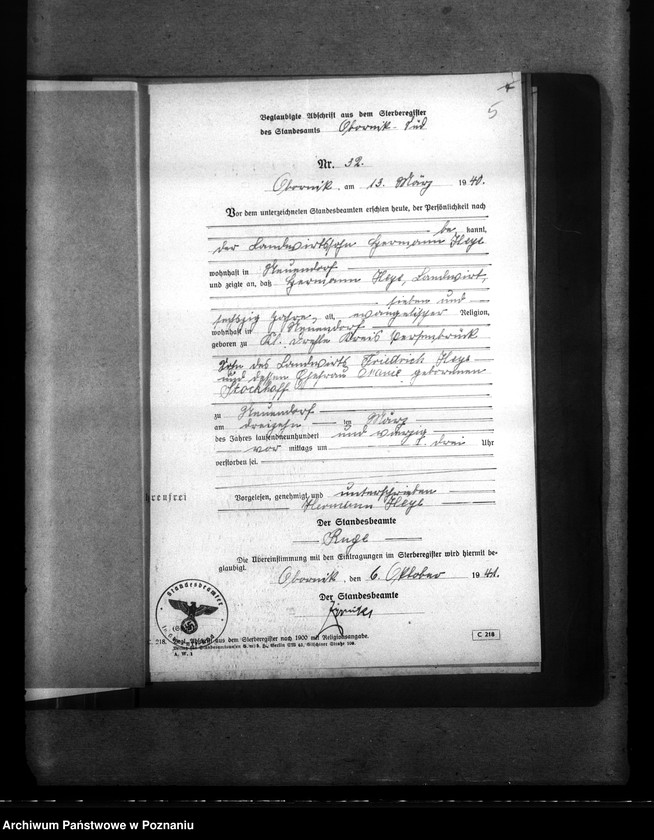 5
Beglaubigte Abschrift aus dem Sterberegister
des Standesamts Obornik-Süd
Nr. 32.
Obornik, am 13. März 1940.
Vor dem unterzeichneten Standesbeamten erschien heute, der Persönlichkeit nach
be kannt,
der Landwirtssohn Hermann Heye
wohnhaft in Neuendorf
und zeigte an, daß Hermann Heye, Landwirt,
sieben und
sechszig Jahre, alt, evangelischer Religion,
wohnhaft in Neuendorf
geboren zu Kl. Kreis Bersenbrück
Sohn des Landwirts Friedrich Heye
und dessen Ehefrau Marie geborenen
Stockhoff
zu Neuendorf
am dreizehn ten März
des Jahres tausendneunhundert und vierzig
vor mittags um drei Uhr
verstorben sei.
Vorgelesen, genehmigt und unterschrieben
Hermann Heye
Der Standesbeamte
Die Übereinstimmung mit den Eintragungen im Sterberegister wird hiermit be-
glaubigt.
Obornik, den 6. Oktober 1941.
Der Standesbeamte
Standesbeamter
C. 218. Begl. Abschrift aus dem Sterberegister nach 1900 mit Religionsangabe.
Verlag für Standesamtswesen G. m. b. H., Berlin SW 61, Gitschiner Straße 109.
A. W. 1
C 218
Archiwum Państwowe w Poznaniu